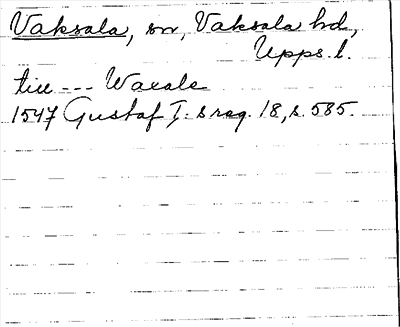 Vaksala, sn, Vaksala hd,
Upps. l.
till --- Wacale
1547 Gustaf I:s reg. 18, s. 585.